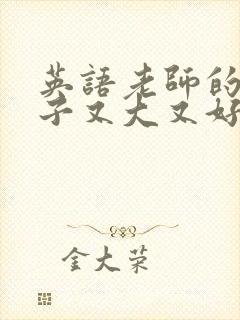 英語老師的
子又大又好
金大荣